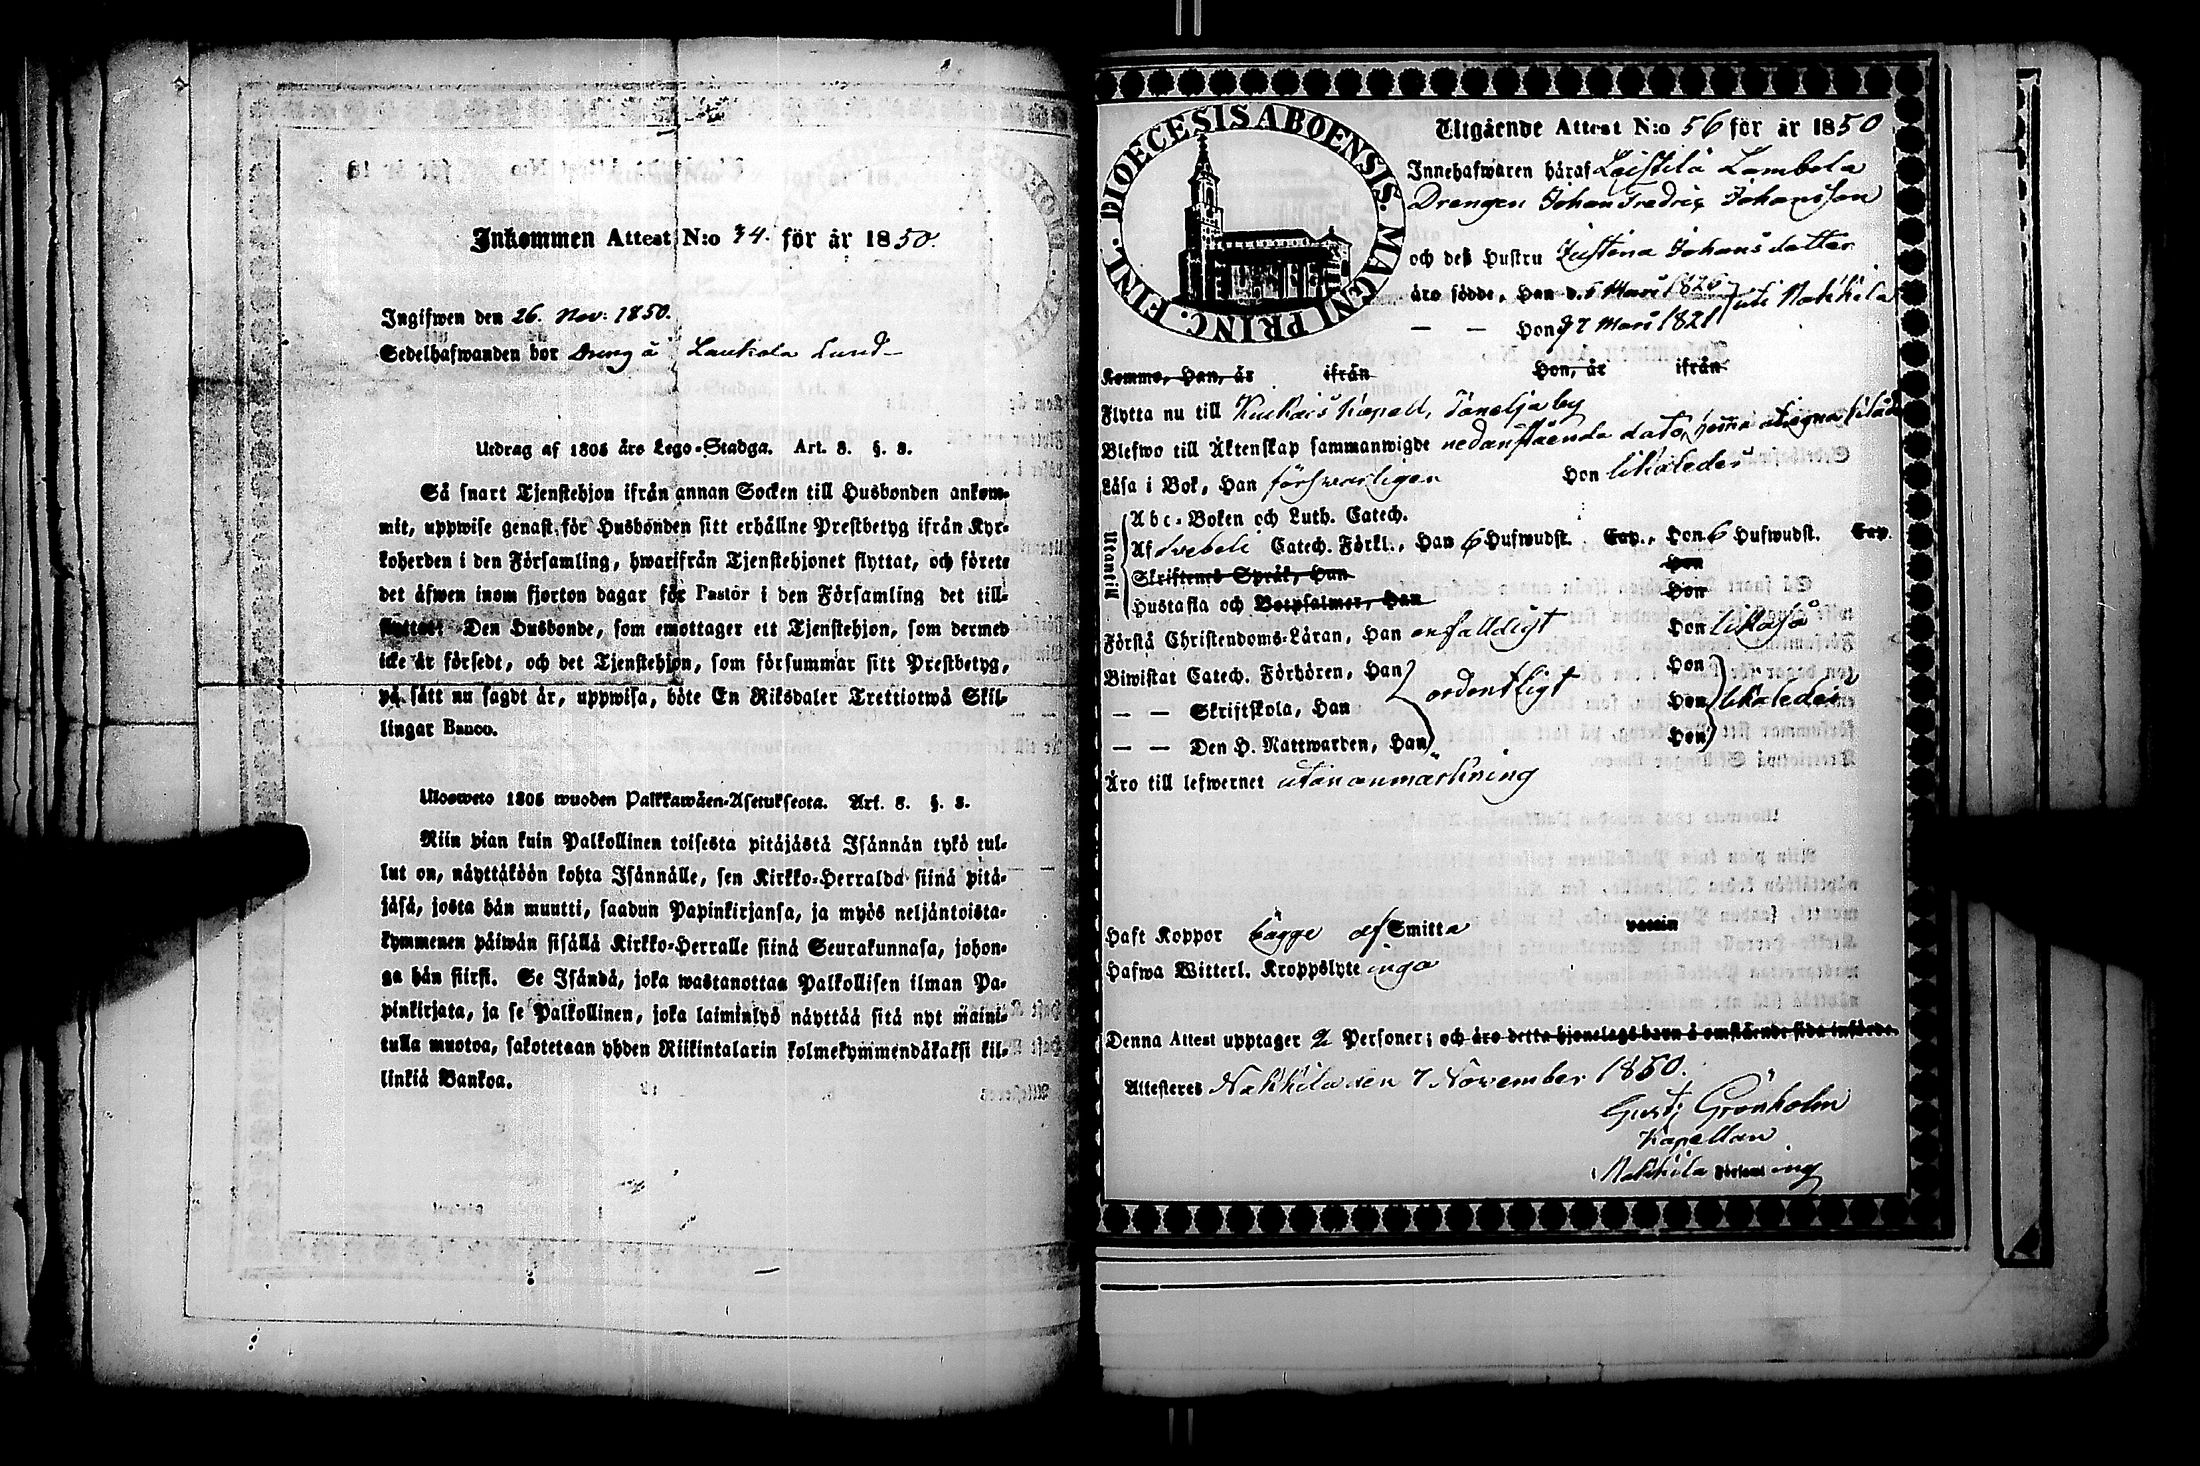 Inkommen Attest N:o 34. för år 1850.
Ingifwen den 26. Nov: 1850.
Sedelhafwanden bor Dreng å Laukola Lund
Utdrag af 1805 års Lego-Stadga. Art. 8. §. 8.
Så snart Tjenstehjon ifrån annan Socken till Husbonden ankom-
mit, uppwise genast för Husbonden sitt erhållne Prestbetyg ifrån Kyr-
koherden i den Församling, hwarifrån Tjenstehjonet flyttat, och förete
det äfwen inom fjorton dagar för Pastor i den Församling det till-
flyttat. Den Husbonde, som emottager ett Tjenstehjon, som dermed
icke är försedt, och det Tjenstehjon, som försummar sitt Prestbetyg,
på sätt nu sagdt är, uppwisa, böte En Riksdaler Trettiotwå Skil-
lingar Banco.
Ulosweto 1805 wuoden Palkkawäen-Asetuksesta. Art. 8. §. 8.
Niin pian kuin Palkollinen toisesta pitäjästä Isännän tykö tul-
lut on, näyttäköön kohta Isännälle, sen Kirkko-Herralda siinä pitä-
jäsä, josta hän muutti, saadun Papinkirjansa, ja myös neljäntoista-
kymmenen päiwän sisällä Kirkko-Herralle siinä Seurakunnasa, johon-
ga hän siirsi. Se Isändä, joka wastanottaa Palkollisen ilman Pa-
pinkirjata, ja se Palkollinen, joka laiminlyö näyttää sitä nyt maini-
tulla muotoa, sakotetaan yhden Riikintalarin kolmekymmendäkaksi kil-
linkiä Bankoa.
FINL. DIOECESIS ABOENSIS. MAGNI PRINC.
Utgående Attest N:o 56 för år 1850
Innehafwaren häraf Leistilä Lambola
Drengen Johan Fredric Johansson
och deß Hustru Justina Johansdotter
äro födde, Han d. 5 Mars 1826
— — Hon 97 Mars 1821 uti Nakkila
Komma, Han, år ifrån Hon, år ifrån
Flytta nu till Kuckais Kapell, Tanelja by
Blefwo till Äktenskap sammanwigde nedanstående dato,
Läsa i Bok, Han försvarligen Hon likaledes
Utantill
Abc-Boken och Luth. Catech.
Af Svebeli Catech. Förkl., Han 6 Hufwudst. Cap., Hon 6 Hufwudst. Cap.
Skriftenes Språk, Han Hon
Hustafla och Botpsalmer, Han Hon
Förstå Christendoms-Läran, Han enfaldigt Hon likaså
Biwistat Catech. Förhören, Han ordentligt Hon likaledes
— — Skriftskola, Han Hon
— — Den H. Nattwarden, Han Hon
Äro till lefwernet utan anmärkning
Haft Koppor bägge af Smitta vaccin
Hafwa Witterl. Kroppslyte inga
Denna Attest upptager 2 Personer; och äro detta hjonelags barn å omstående sida införde.
Attesteres Nakkila den 7 November 1850.
Gust: Grönholm
Kapellan
Nakkila Församling